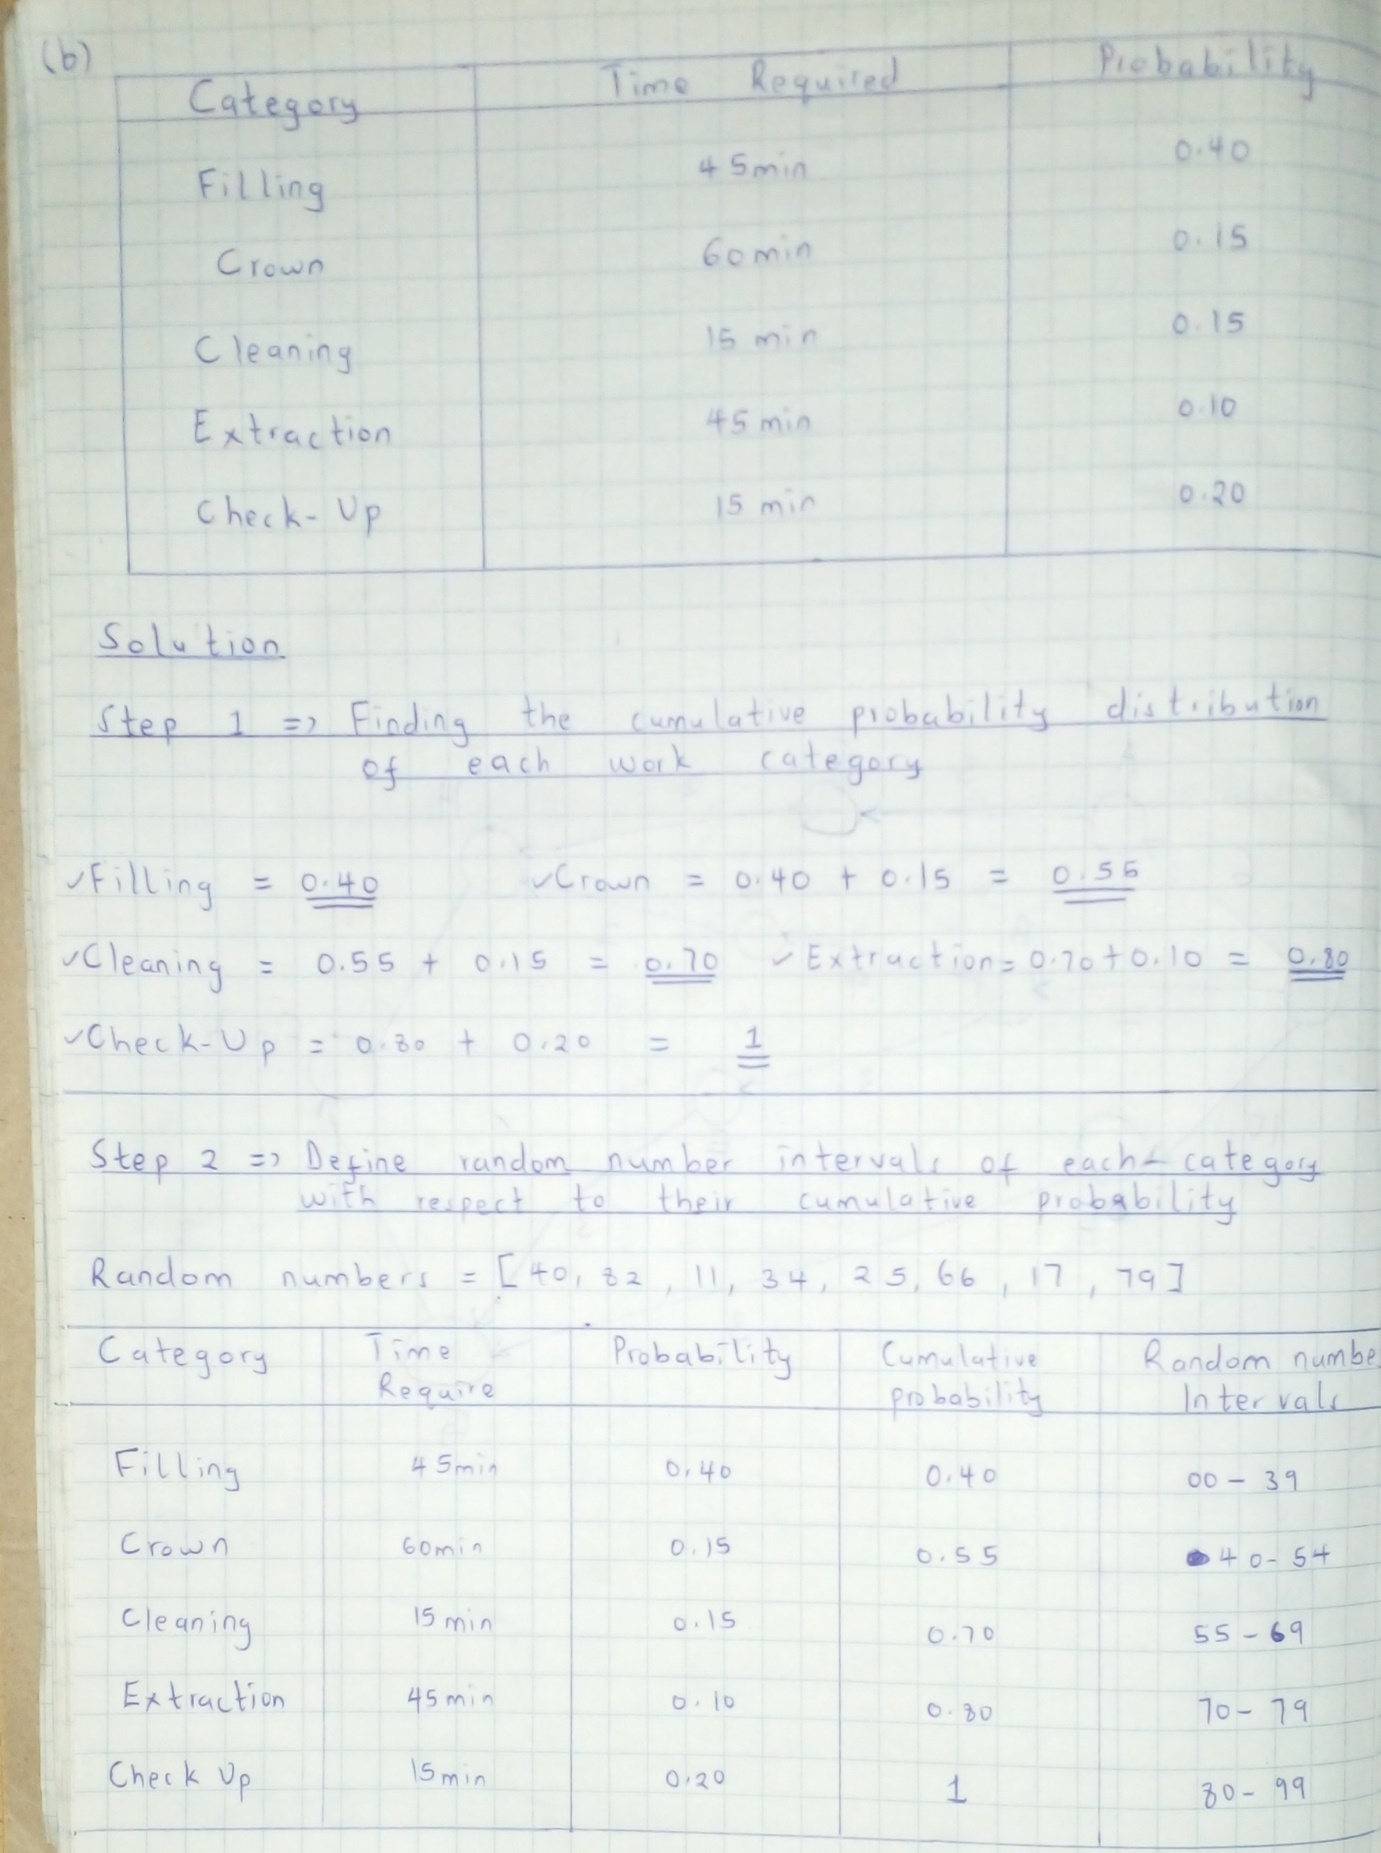 (b)
Category Time Required Probability
Filling 45min 0.40
Crown 60min 0.15
Cleaning 15 min 0.15
Extraction 45 min 0.10
Check-Up 15 min 0.20
Solution
Step 1 => Finding the cumulative probability distribution
of each work category
✓Filling = 0.40 ✓Crown = 0.40 + 0.15 = 0.55
✓Cleaning = 0.55 + 0.15 = 0.70 ✓Extraction = 0.70 + 0.10 = 0.80
✓Check-Up = 0.80 + 0.20 = 1
Step 2 => Define random number intervals of each category
with respect to their cumulative probability
Random numbers = [40, 82, 11, 34, 25, 66, 17, 79]
Category Time Probability Cumulative Random numbe
Require probability Intervals
Filling 45min 0.40 0.40 00 - 39
Crown 60min 0.15 0.55 40 - 54
Cleaning 15 min 0.15 0.70 55 - 69
Extraction 45min 0.10 0.80 70 - 79
Check Up 15min 0.20 1 80 - 99